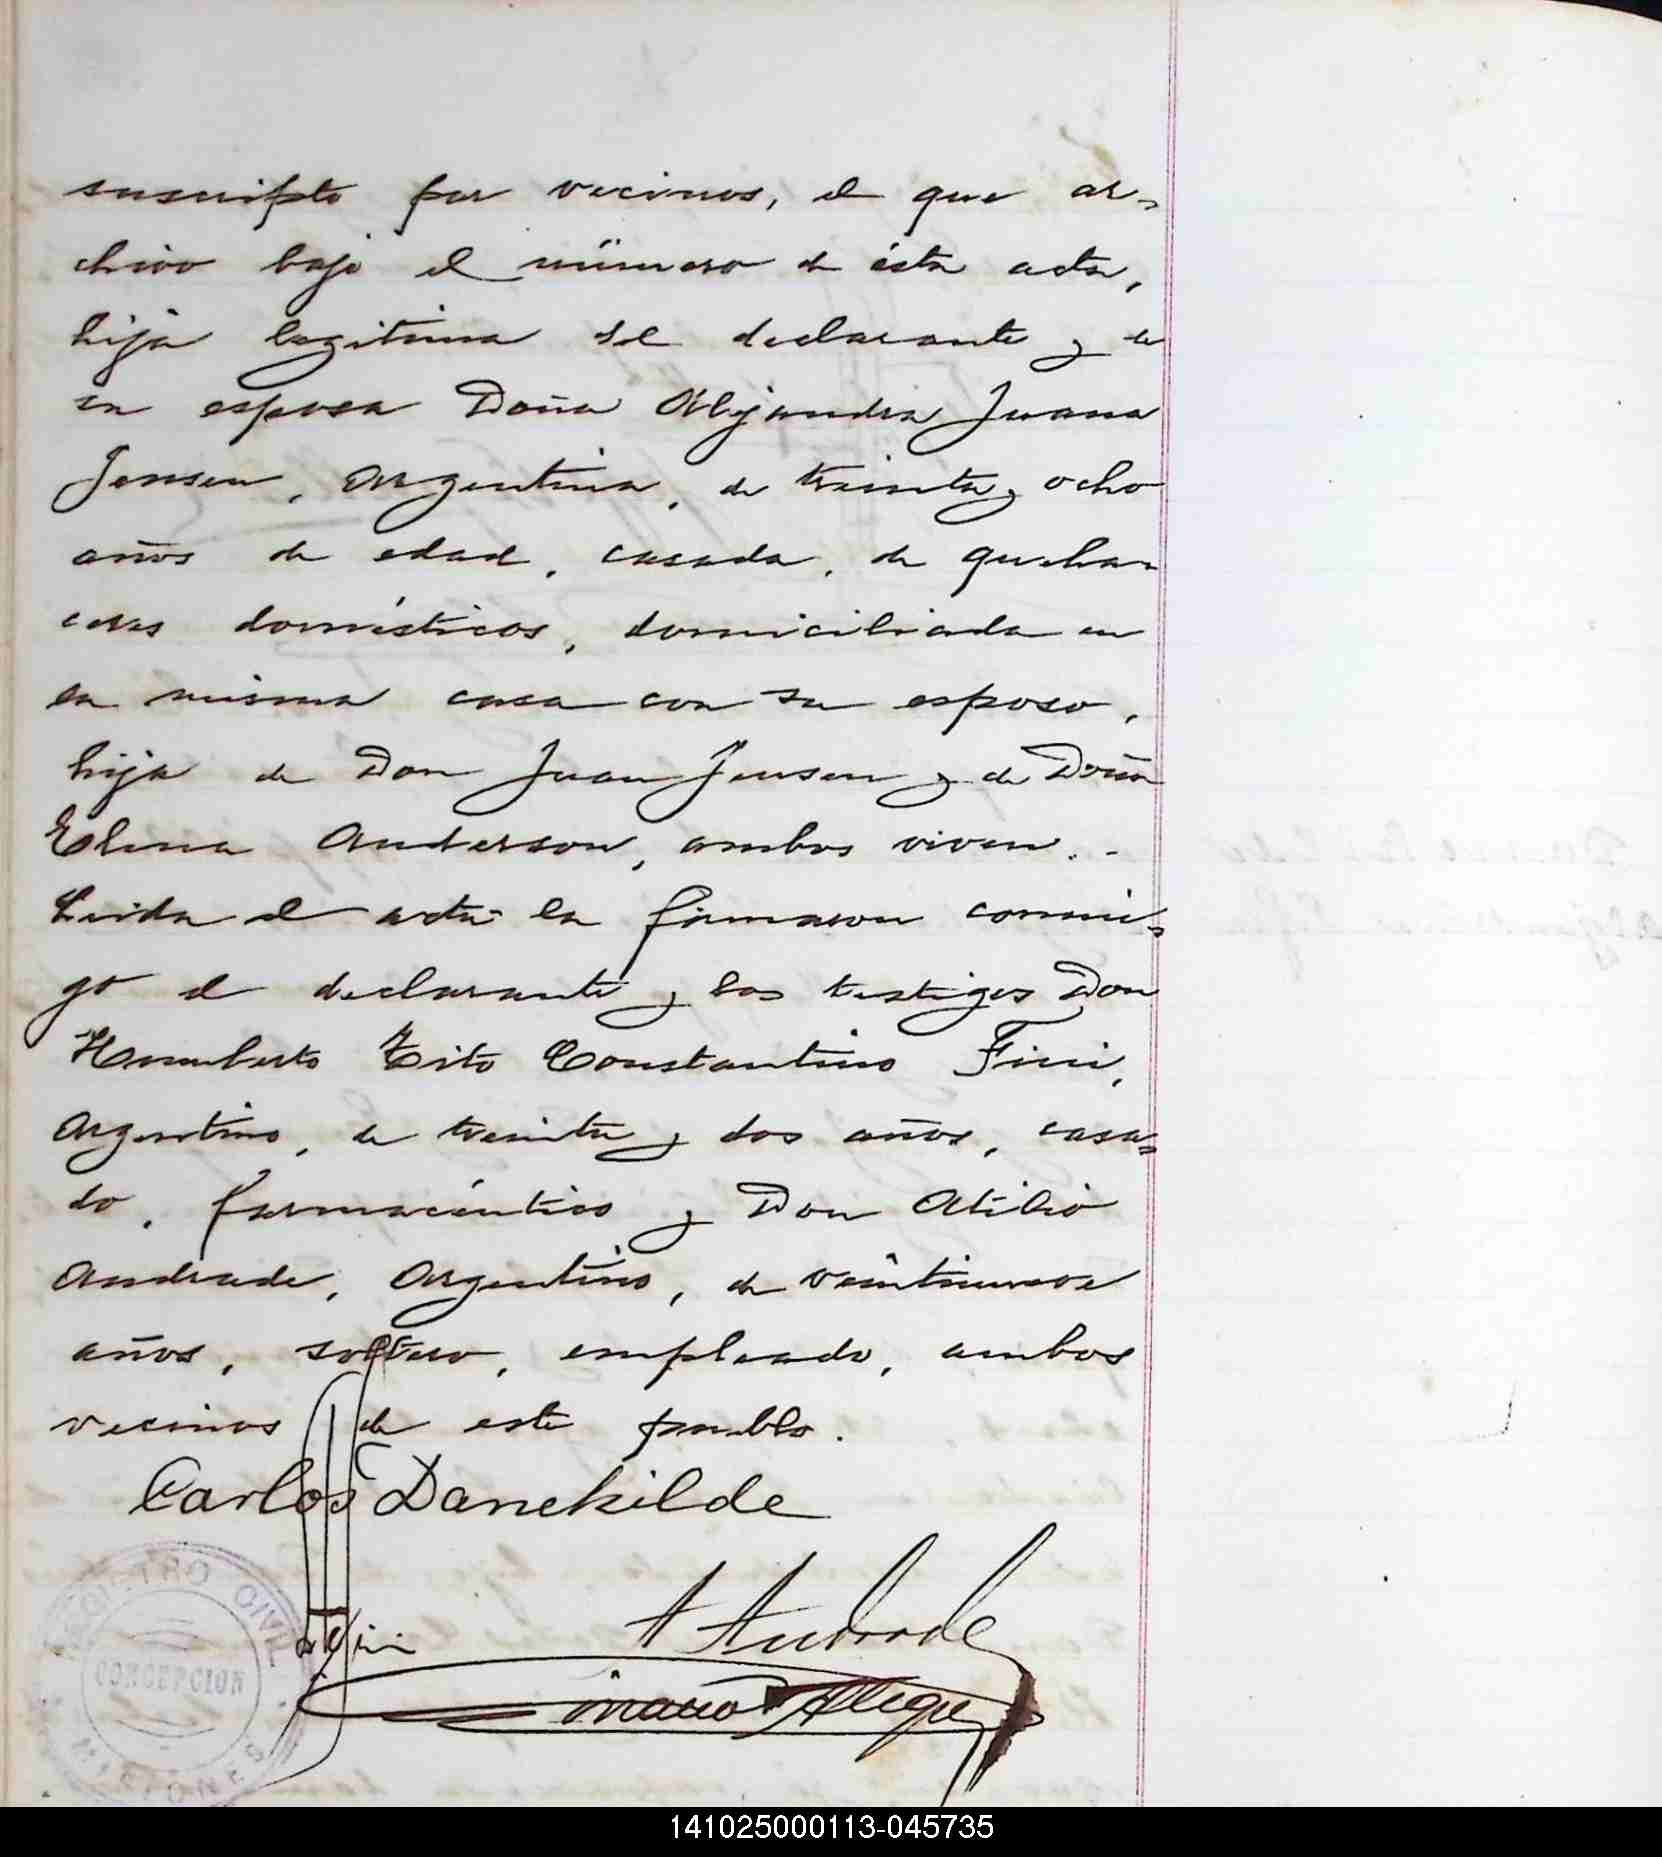 suscripto por vecinos, el que ar-
chivo bajo el número de ésta acta,
hija legitima del declarante y de
su esposa Doña Alejandra Juana
Jensen, Argentina, de treinta y ocho
años de edad, casada, de queha-
ceres domésticos, domiciliada en
la misma casa con su esposo,
hija de Don Juan Jensen y de Doña
Elena Anderson, ambos viven.-
Leida el acta la firmaron conmi-
go el declarante y los testigos Don
Humberto Tito Constantino Fini,
Argentino, de treinta y dos años, casa-
do, farmacéutico y Don Atilio
Andrade, Argentino, de veintinueve
años, soltero, empleado, ambos
vecinos de este pueblo.
Carlos Danekilde
A Andrade
REGISTRO CIVIL
CONCEPCION
MISIONES
141025000113-045735